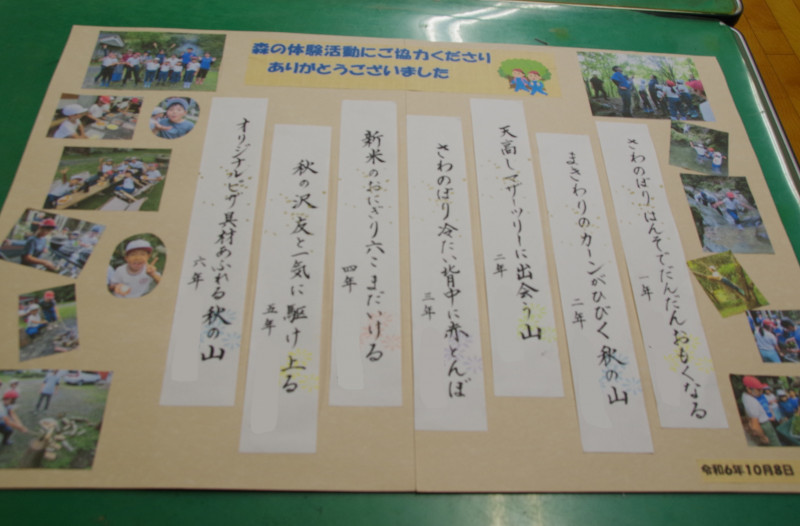 森の体験活動にご協力くださり
ありがとうございました
さわのぼり はんそでだんだんおもくなる
一年
まきわりのカーンがひびく秋の山
二年
天高しマザーツリーに出会う山
二年
さわのぼり冷たい背中に赤とんぼ
三年
新米のおにぎり六こまだいける
四年
秋の沢友と一気に駆け上る
五年
オリジナルピザ具材あふれる秋の山
六年
令和6年10月8日